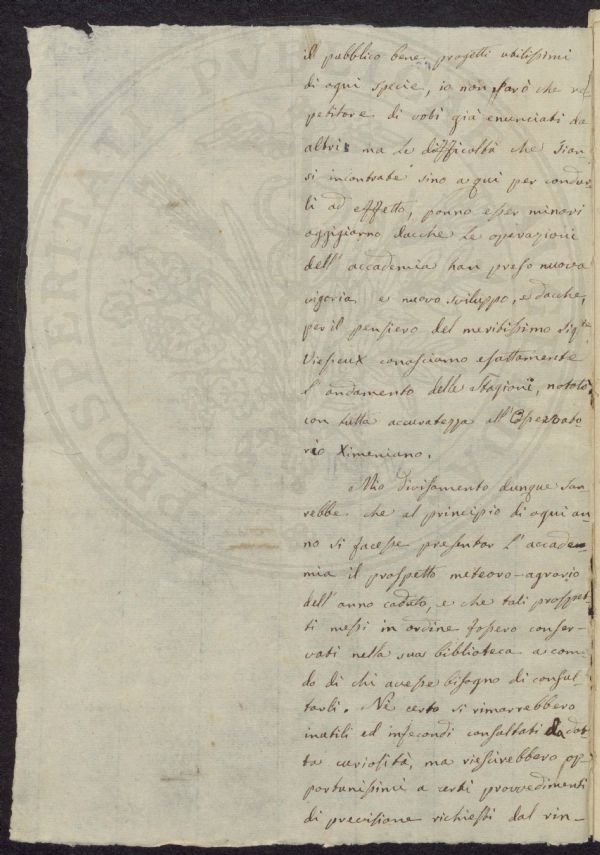 il pubblico bene progetti utilissimi
di ogni specie, io non sarò che re-
petitore di voti già enunciati da
altri: ma le difficoltà che sian-
si incontrate sino a qui per condur
li ad effetto, ponno esser minori
oggigiorno dacche le operazioni
dell' accademia han preso nuova
vigoria e nuovo sviluppo, e dacche,
per il pensiero del meritissimo Sigre
Viesieux conosciamo esattamente
l' andamento delle Stagioni, notato
con tutta accuratezza all' Osservato-
rio Ximeniano.
Mio divisamento dunque sa-
rebbe che al principio di ogni an-
no si facesse presentar l' accade-
mia il prospetto meteoro-agrario
dell' anno caduto, e che tali prospet-
ti messi in ordine fossero conser-
vati nella sua biblioteca a como-
do di chi avesse bisogno di consul-
tarli. Nè certo si rimarrebbero
inutili ed infecondi consultati da dot-
ta curiosità, ma riescirebbero op-
portunissimi a certi provvedimenti
di precisione richiesti dal rin-